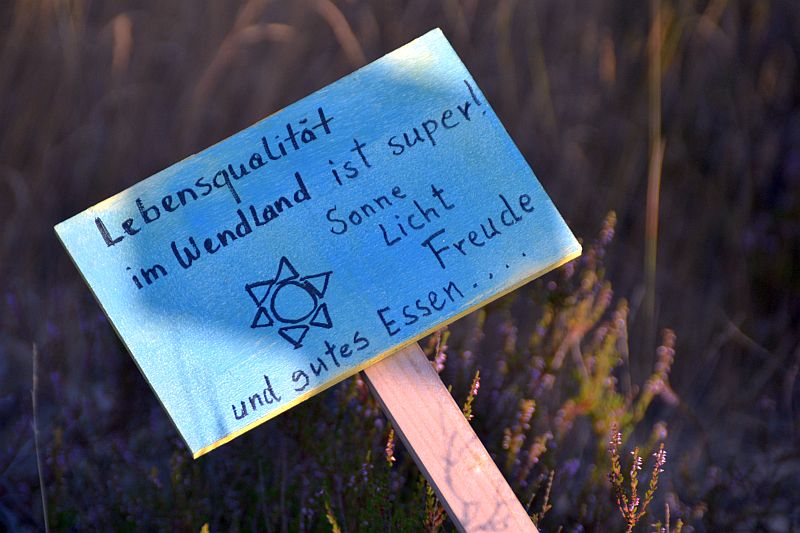 Lebensqualität
im Wendland ist super!
Sonne
Licht
Freude
und gutes Essen....